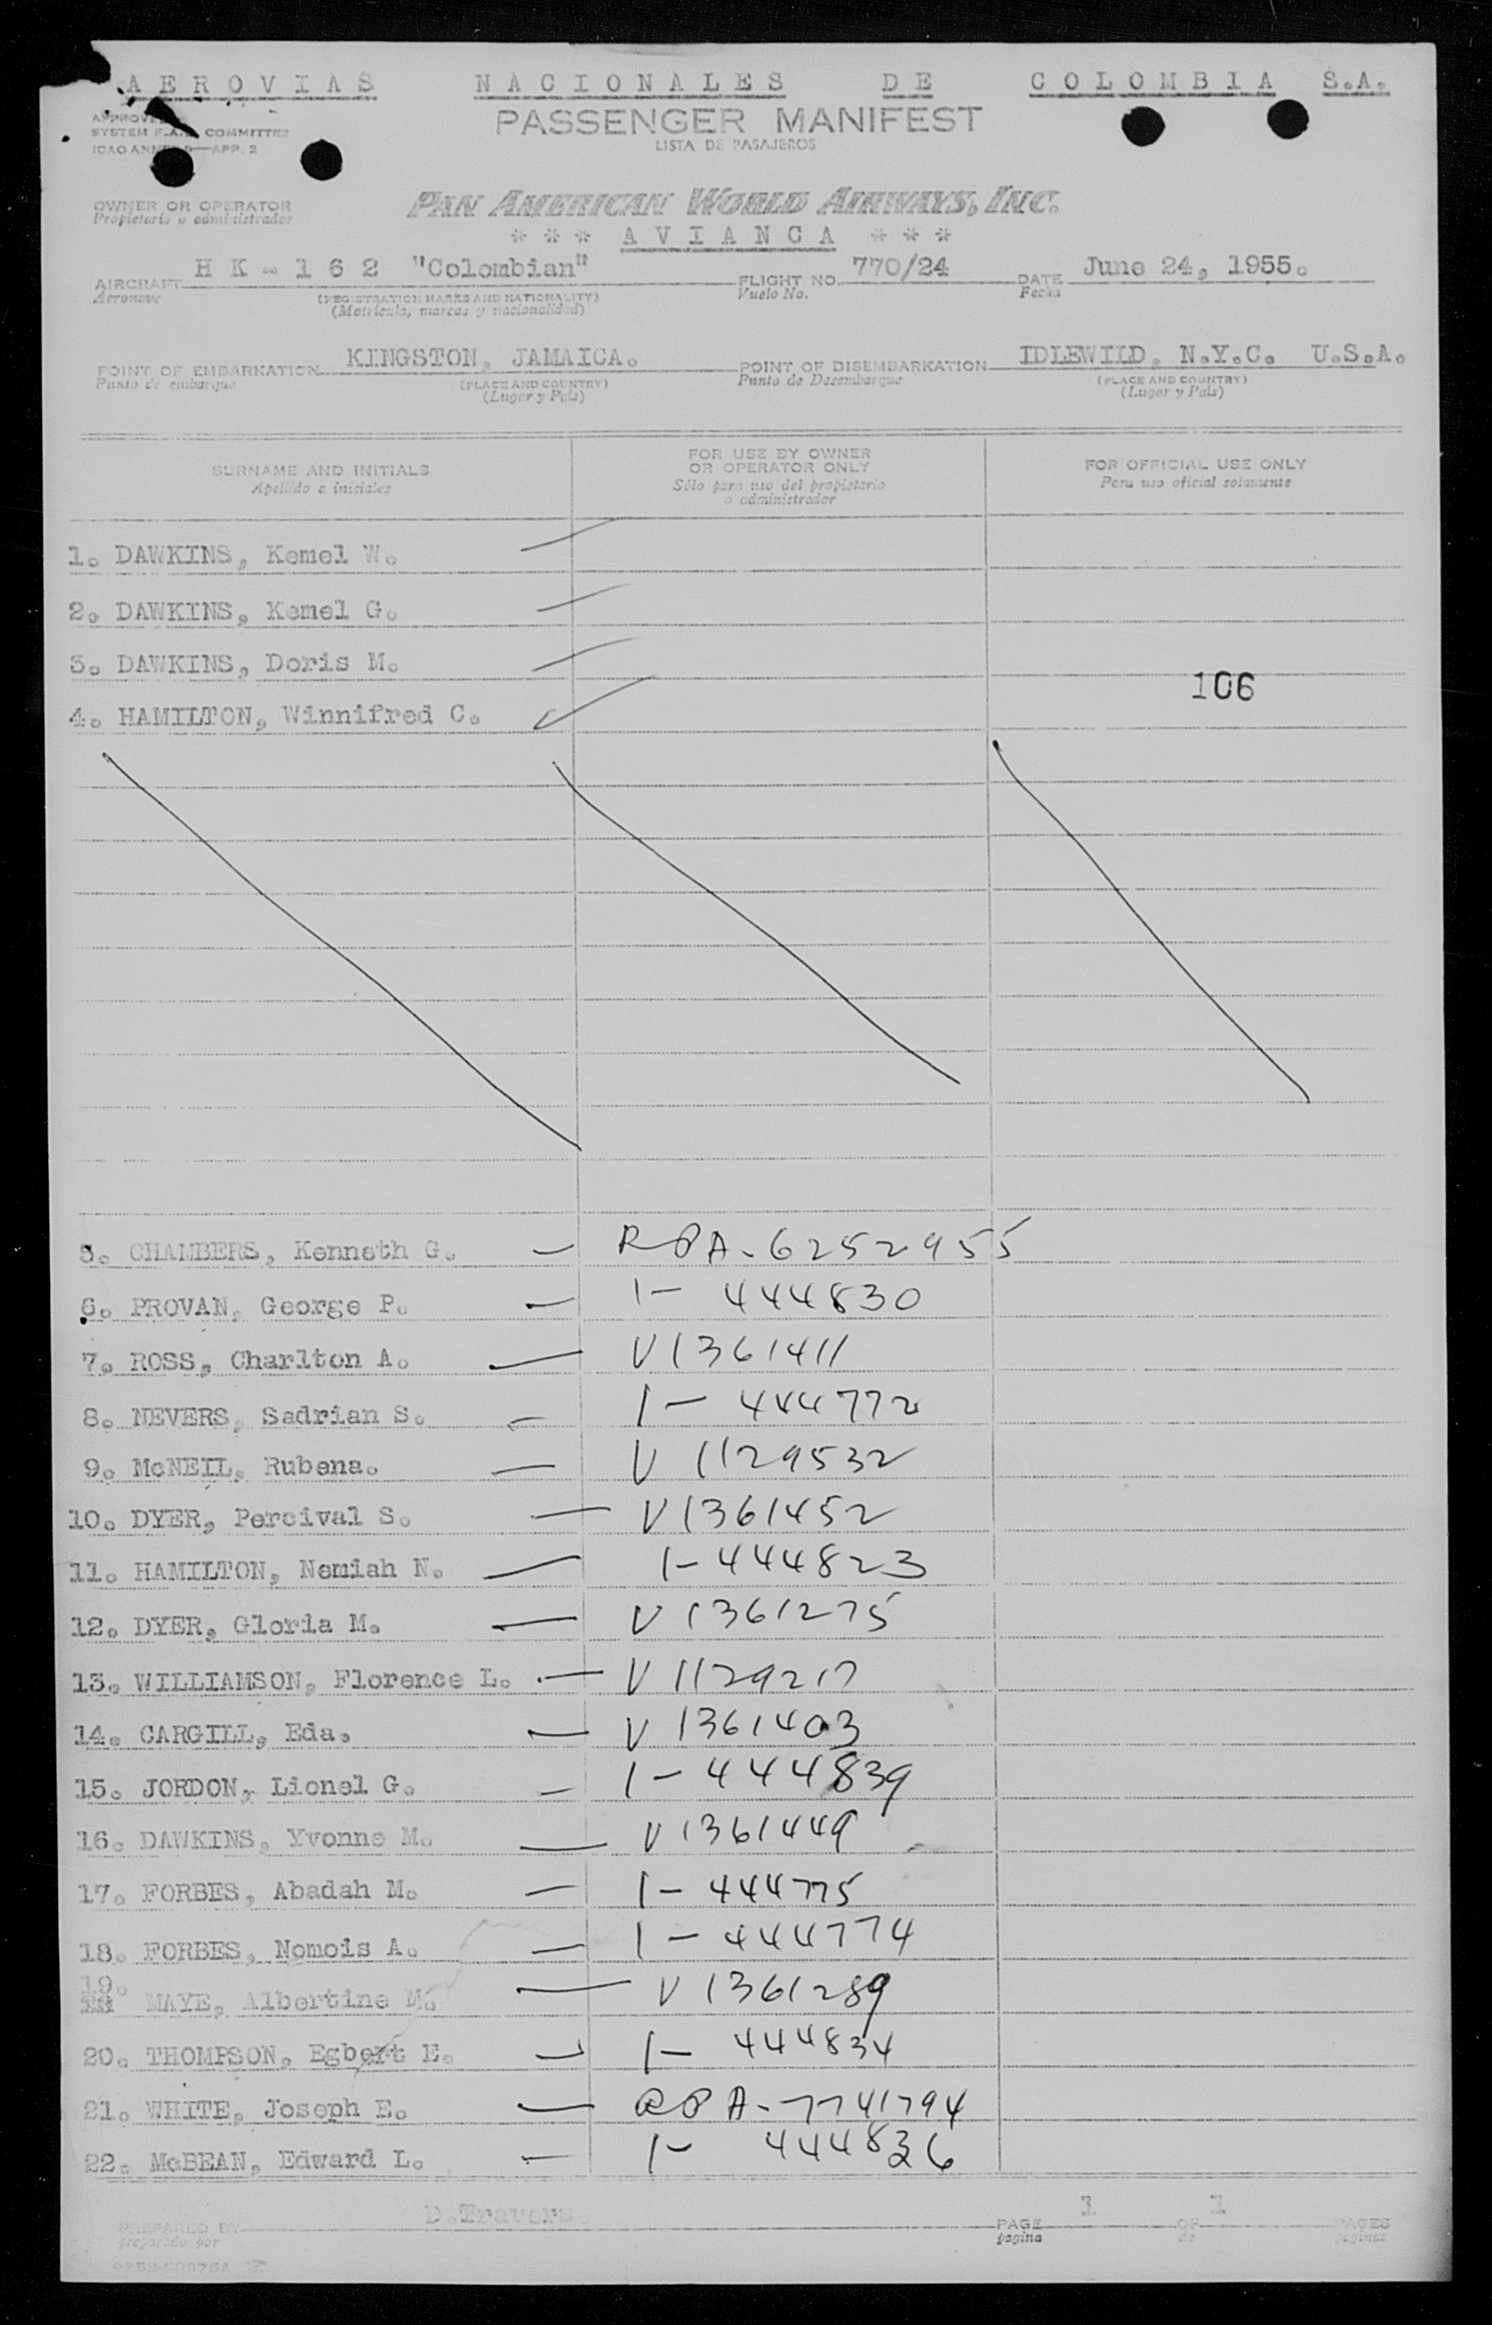 AEROVIAS NACIONALES DE COLOMBIA S.A.
PASSENGER MANIFEST
LISTA DE PASAJEROS
SYSTEM F.A.L. COMMITTEE
APP. 2
OWNER OR OPERATOR
Propietario o administrador
PAN AMERICAN WORLD AIRWAYS, INC.
* * * AVIANCA * * *
AIRCRAFT HK-162 "Colombian" FLIGHT NO. 770/24 DATE June 24, 1955.
Aeronave (REGISTRATION MARKS AND NATIONALITY) Vuelo No. Fecha
(Matricula, marcas y nacionalidad)
POINT OF EMBARKATION KINGSTON, JAMAICA. POINT OF DISEMBARKATION IDLEWILD, N.Y.C. U.S.A.
Punto de embarque (PLACE AND COUNTRY) Punto de Desembarque (PLACE AND COUNTRY)
(Lugar y País) (Lugar y País)
SURNAME AND INITIALS
Apellido e iniciales
FOR USE BY OWNER
OR OPERATOR ONLY
Sólo para uso del propietario
o administrador
FOR OFFICIAL USE ONLY
Para uso oficial solamente
1. DAWKINS, Kemel W.
2. DAWKINS, Kemel G.
3. DAWKINS, Doris M.
106
4. HAMILTON, Winnifred C.
5. CHAMBERS, Kenneth G. — RPA-6252955
6. PROVAN, George P. — 1- 444830
7. ROSS, Charlton A. — V1361411
8. NEVERS, Sadrian S. — 1- 444772
9. McNEIL, Rubena. — V 1129532
10. DYER, Percival S. — V1361452
11. HAMILTON, Nemiah N. — 1-444823
12. DYER, Gloria M. — V1361275
13. WILLIAMSON, Florence L. — V 1129217
14. CARGILL, Eda. — V 1361403
15. JORDON, Lionel G. — 1-444839
16. DAWKINS, Yvonne M. — V1361449
17. FORBES, Abadah M. — 1-444775
18. FORBES, Nomois A. — 1-444774
19. MAYE, Albertine M. — V1361289
20. THOMPSON, Egbert E. — 1- 444834
21. WHITE, Joseph E. — RPA-7741794
22. McBEAN, Edward L. — 1- 444836
PREPARED BY D.Travers. PAGE 1 OF 1 PAGES
preparado por pagina de paginas